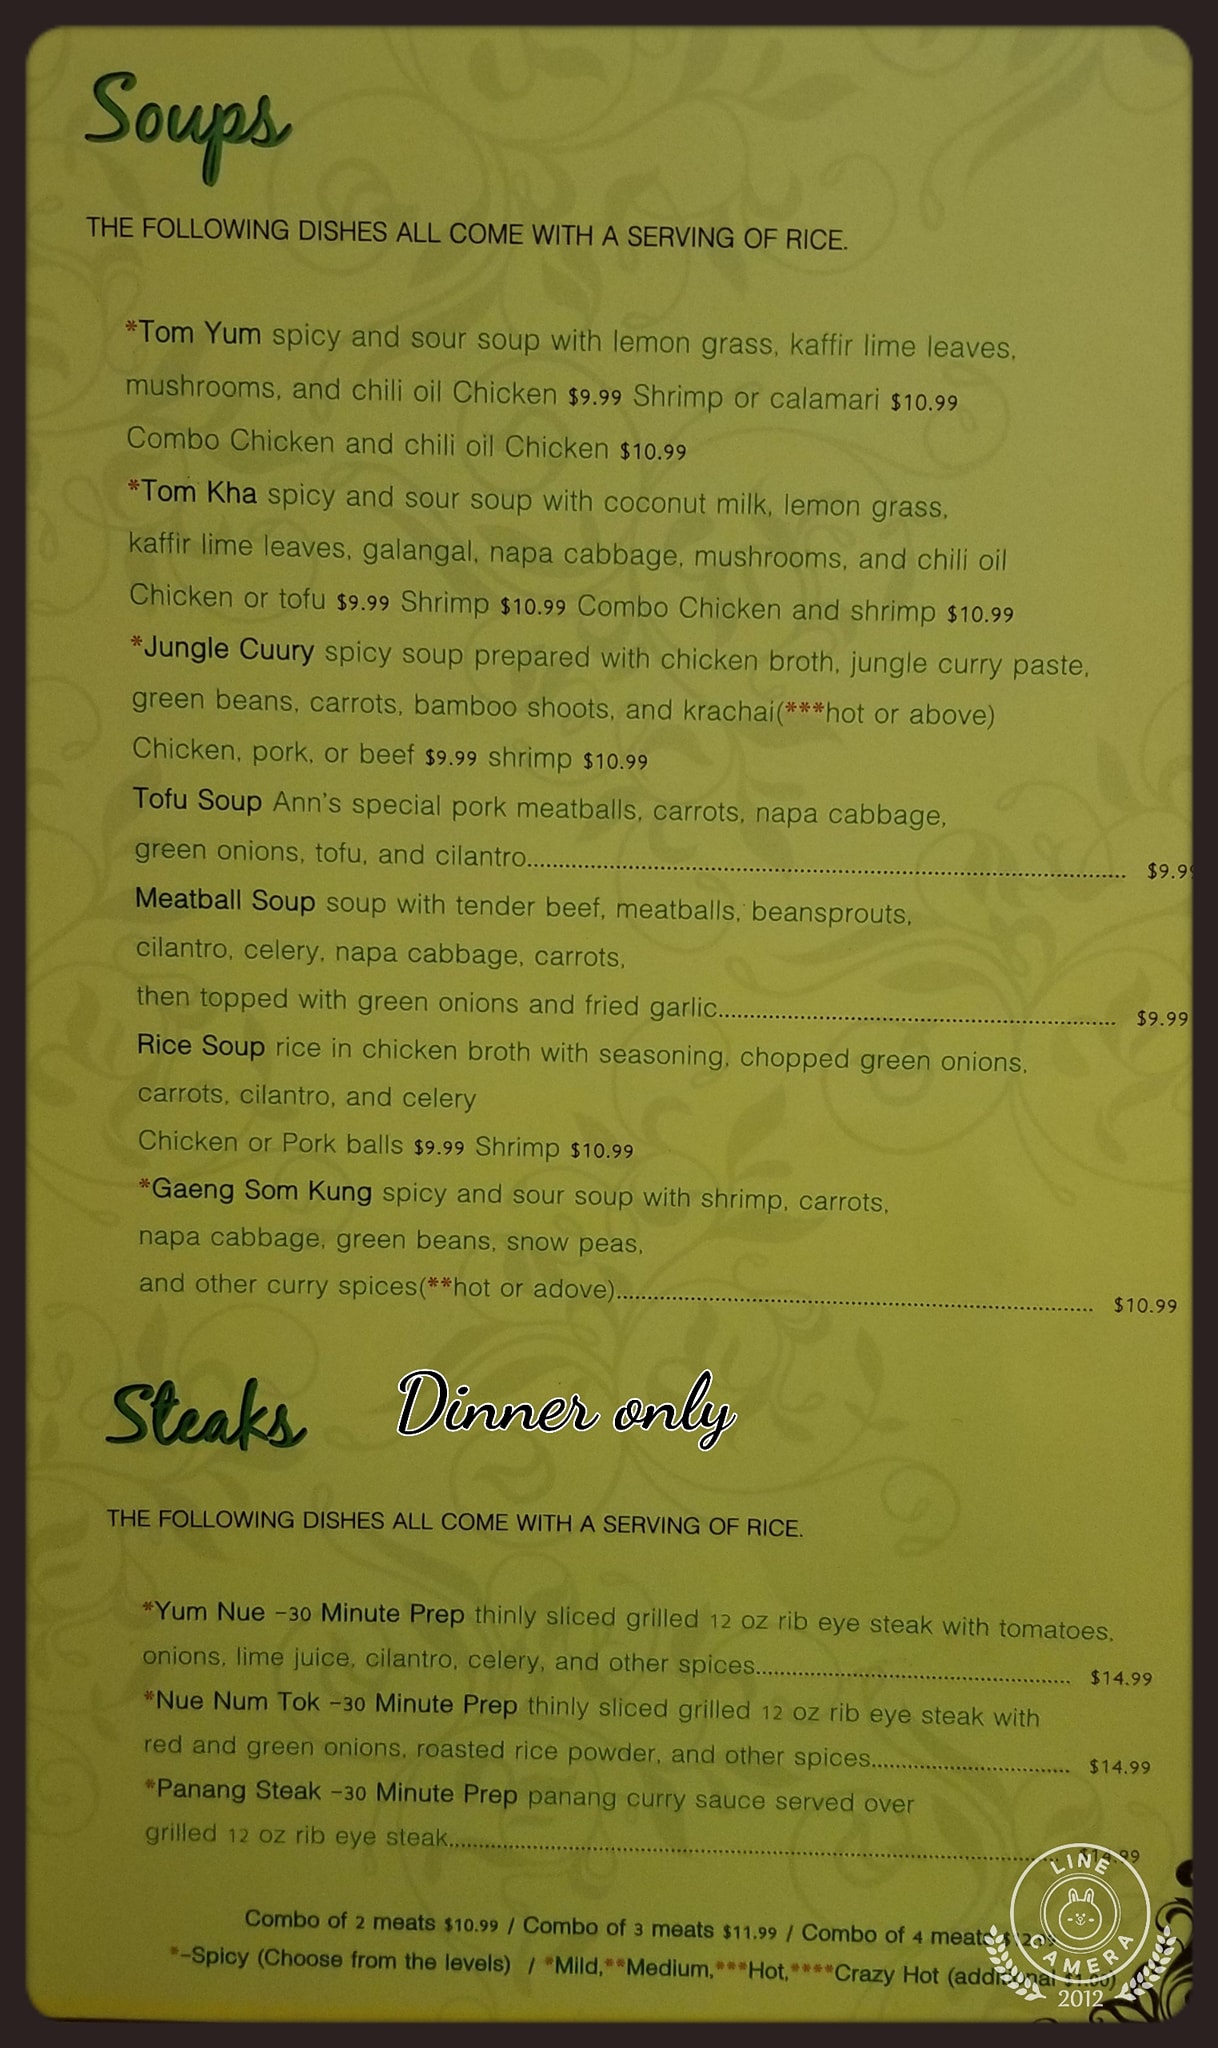 Soups
THE FOLLOWING DISHES ALL COME WITH A SERVING OF RICE.
*Tom Yum spicy and sour soup with lemon grass, kaffir lime leaves,
mushrooms, and chili oil Chicken $9.99 Shrimp or calamari $10.99
Combo Chicken and chili oil Chicken $10.99
*Tom Kha spicy and sour soup with coconut milk, lemon grass,
kaffir lime leaves, galangal, napa cabbage, mushrooms, and chili oil
Chicken or tofu $9.99 Shrimp $10.99 Combo Chicken and shrimp $10.99
*Jungle Cuury spicy soup prepared with chicken broth, jungle curry paste,
green beans, carrots, bamboo shoots, and krachai(***hot or above)
Chicken, pork, or beef $9.99 shrimp $10.99
Tofu Soup Ann's special pork meatballs, carrots, napa cabbage,
green onions, tofu, and cilantro........ $9.99
Meatball Soup soup with tender beef, meatballs, beansprouts,
cilantro, celery, napa cabbage, carrots,
then topped with green onions and fried garlic........ $9.99
Rice Soup rice in chicken broth with seasoning, chopped green onions,
carrots, cilantro, and celery
Chicken or Pork balls $9.99 Shrimp $10.99
*Gaeng Som Kung spicy and sour soup with shrimp, carrots,
napa cabbage, green beans, snow peas,
and other curry spices(**hot or adove)........ $10.99
Steaks Dinner only
THE FOLLOWING DISHES ALL COME WITH A SERVING OF RICE.
*Yum Nue -30 Minute Prep thinly sliced grilled 12 oz rib eye steak with tomatoes,
onions, lime juice, cilantro, celery, and other spices........ $14.99
*Nue Num Tok -30 Minute Prep thinly sliced grilled 12 oz rib eye steak with
red and green onions, roasted rice powder, and other spices........ $14.99
*Panang Steak -30 Minute Prep panang curry sauce served over
grilled 12 oz rib eye steak........ $14.99
Combo of 2 meats $10.99 / Combo of 3 meats $11.99 / Combo of 4 meats
*-Spicy (Choose from the levels) / *Mild,**Medium,***Hot,****Crazy Hot (additional $1.00)
LINE
CAMERA
2012